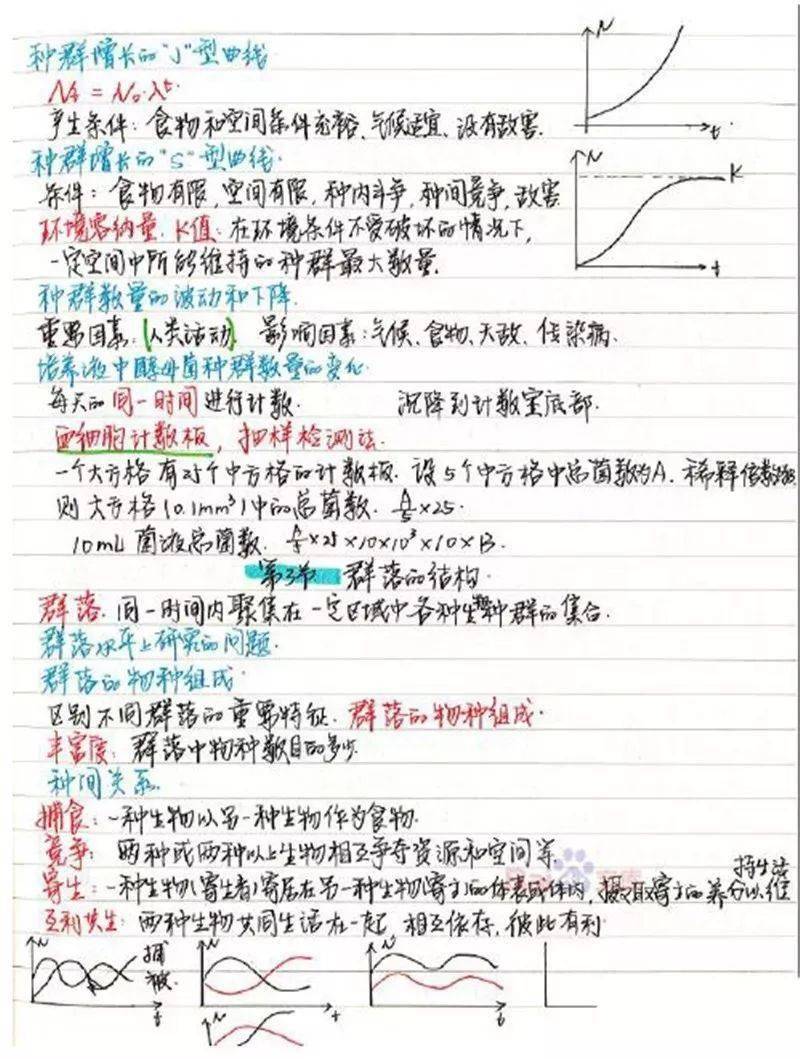 种群增长的"J"型曲线
Nt = N₀·λᵗ
产生条件: 食物和空间条件充裕、气候适宜、没有敌害.
N
t
种群增长的"S"型曲线.
条件: 食物有限, 空间有限, 种内斗争, 种间竞争, 敌害
N
K
t
环境容纳量. K值: 在环境条件不受破坏的情况下,
一定空间中所能维持的种群最大数量.
种群数量的波动和下降.
重要因素: (人类活动) 影响因素: 气候、食物、天敌、传染病.
培养液中酵母菌种群数量的变化.
每天的同一时间进行计数. 沉降到计数室底部.
血细胞计数板, 抽样检测法.
一个大方格有25个中方格的计数板. 设5个中方格中总菌数为A. 稀释倍数为B
则大方格(0.1mm³)中的总菌数. A/5×25.
10mL菌液总菌数. A/5×25×10×10³×10×B.
第3节 群落的结构.
群落. 同一时间内聚集在一定区域中各种生物种群的集合.
群落水平上研究的问题.
群落的物种组成.
区别不同群落的重要特征. 群落的物种组成.
丰富度: 群落中物种数目的多少
种间关系.
捕食: 一种生物以另一种生物作为食物.
竞争: 两种或两种以上生物相互争夺资源和空间等.
寄生: 一种生物(寄生者)寄居在另一种生物(寄主)的体表或体内, 摄取寄主的养分以维
持生活
互利共生: 两种生物共同生活在一起, 相互依存, 彼此有利.
N
捕
被
t
N
t
N
t
N